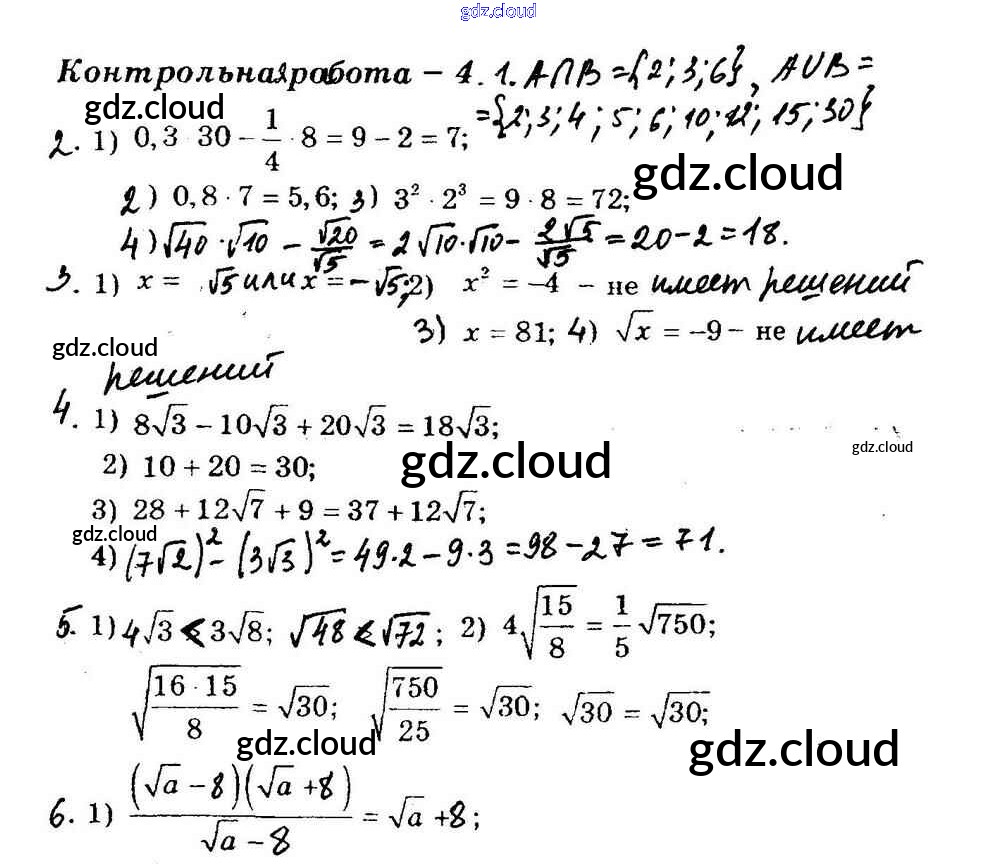 gdz.cloud
Контрольная работа – 4. 1. A∩B = {2; 3; 6}, A∪B =
= {2; 3; 4; 5; 6; 10; 12; 15; 30}
2. 1) 0,3 · 30 – 1/4 · 8 = 9 – 2 = 7;
gdz.cloud
2) 0,8 · 7 = 5,6; 3) 3² · 2³ = 9 · 8 = 72;
4) √40 · √10 – √20/√5 = 2√10 · √10 – 2√5/√5 = 20 – 2 = 18.
3. 1) x = √5 или x = –√5; 2) x² = –4 – не имеет решений
3) x = 81; 4) √x = –9 – не имеет
gdz.cloud
решений
4. 1) 8√3 – 10√3 + 20√3 = 18√3;
gdz.cloud
2) 10 + 20 = 30;
gdz.cloud
3) 28 + 12√7 + 9 = 37 + 12√7;
gdz.cloud
4) (7√2)² – (3√3)² = 49·2 – 9·3 = 98 – 27 = 71.
5. 1) 4√3 < 3√8; √48 < √72; 2) 4√(15/8) = 1/5 √750;
√(16 · 15/8) = √30; √(750/25) = √30; √30 = √30;
gdz.cloud
gdz.cloud
6. 1) (√a – 8)(√a + 8)/(√a – 8) = √a + 8;
gdz.cloud